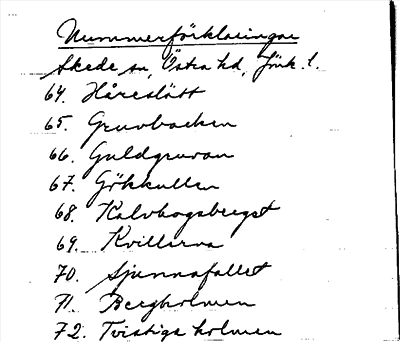 Nummerförklaringar
Skede sn, Östra hd, Jönk. l.
64. Håreslätt
65. Gruvbacken
66. Guldgruvan
67. Gökkullen
68. Kalvhagsberget
69. Kvillarna
70. Sjunnafallet
71. Bergholmen
72. Tvistiga holmen